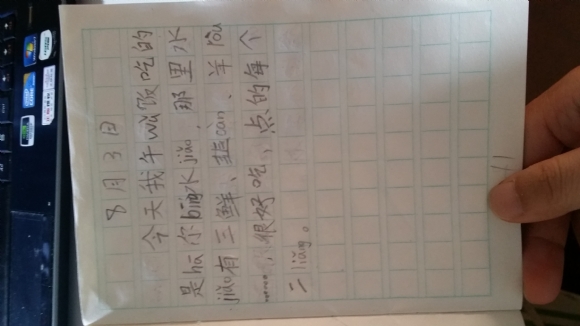 8月3日
今天我午wǔ饭吃的
是hā尔bīng水jiǎo，那里水
jiǎo有三鲜、韭cài、羊ròu
……，很好吃，点的每个
二liǎng。